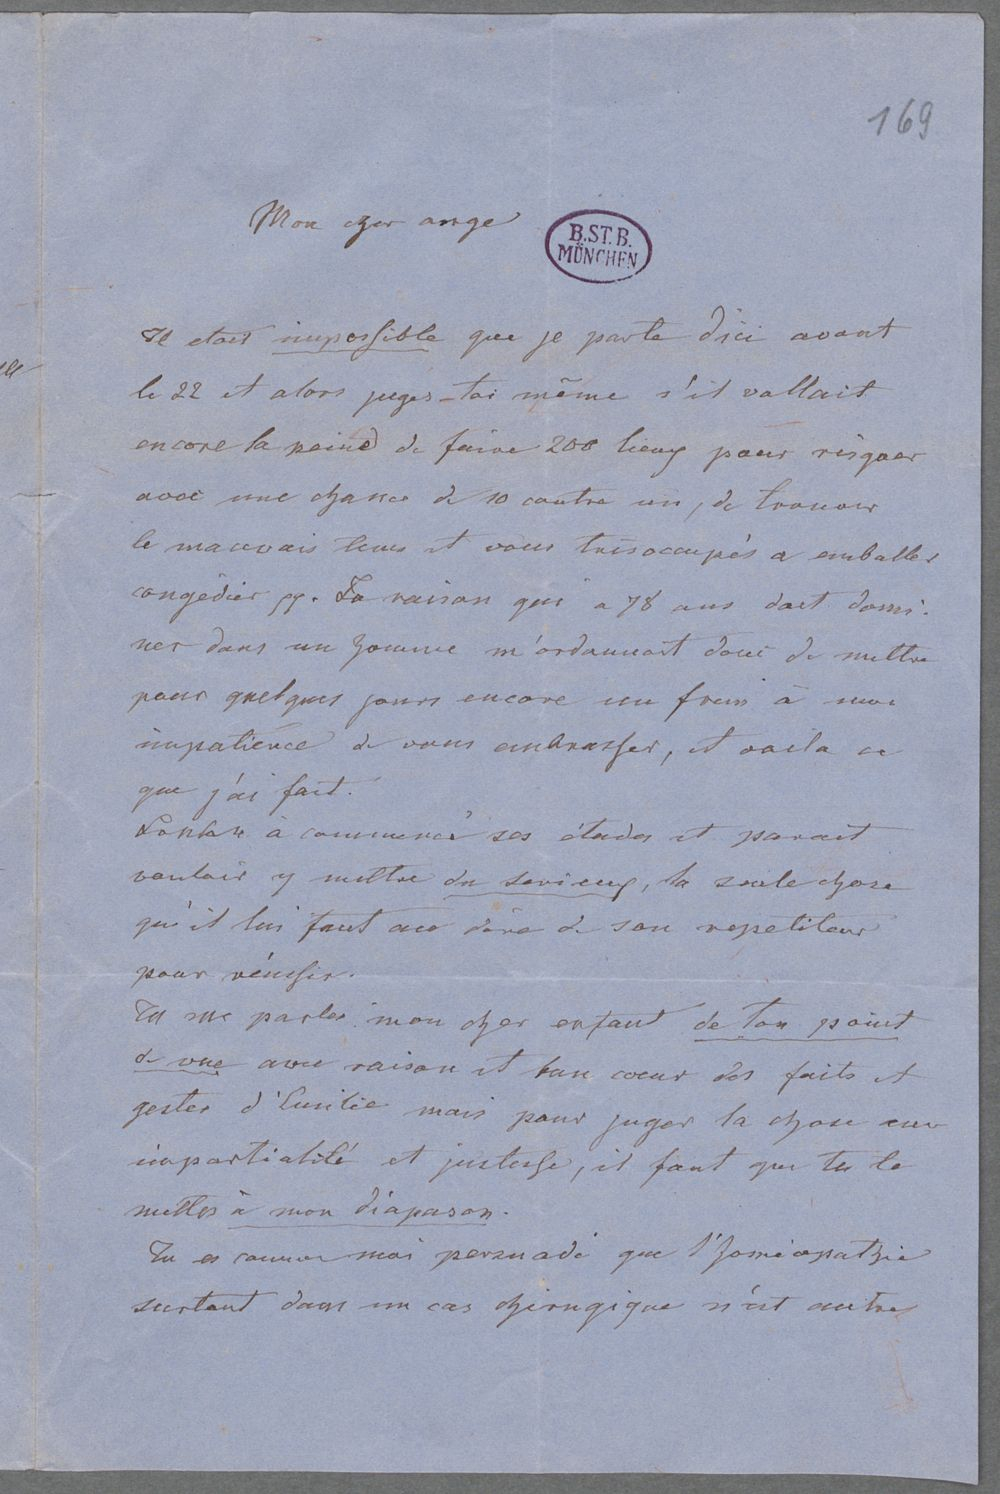 169
Mon cher ange
B.ST.B.
MÜNCHEN
Il etait impossible que je parte d'ici avant
le 22 et alors juges-toi même s'il vallait
encore la peine de faire 200 lieux pour risquer
avec une chance de 10 contre un, de trouver
le mauvais tems et vous très occupés a emballer
congédier pp. La raison qui a 78 ans doit domi-
ner dans un homme m'ordonnait donc de mettre
pour quelques jours encore un frein à mon
impatience de vous embrasser, et voila ce
que j'ai fait.
à commencé ses études et parait
vouloir y mettre du serieux, la seule chose
qu'il lui faut au dire de son repetiteur
pour réussir.
Tu me parles mon cher enfant de ton point
de vue avec raison et bon coeur des faits et
gestes d'Emilie mais pour juger la chose en
impartialité et justesse, il faut que tu te
mettes à mon diapason.
Tu es comme moi persuadé que l'homéopathie
surtout dans un cas chirugique n'est autre